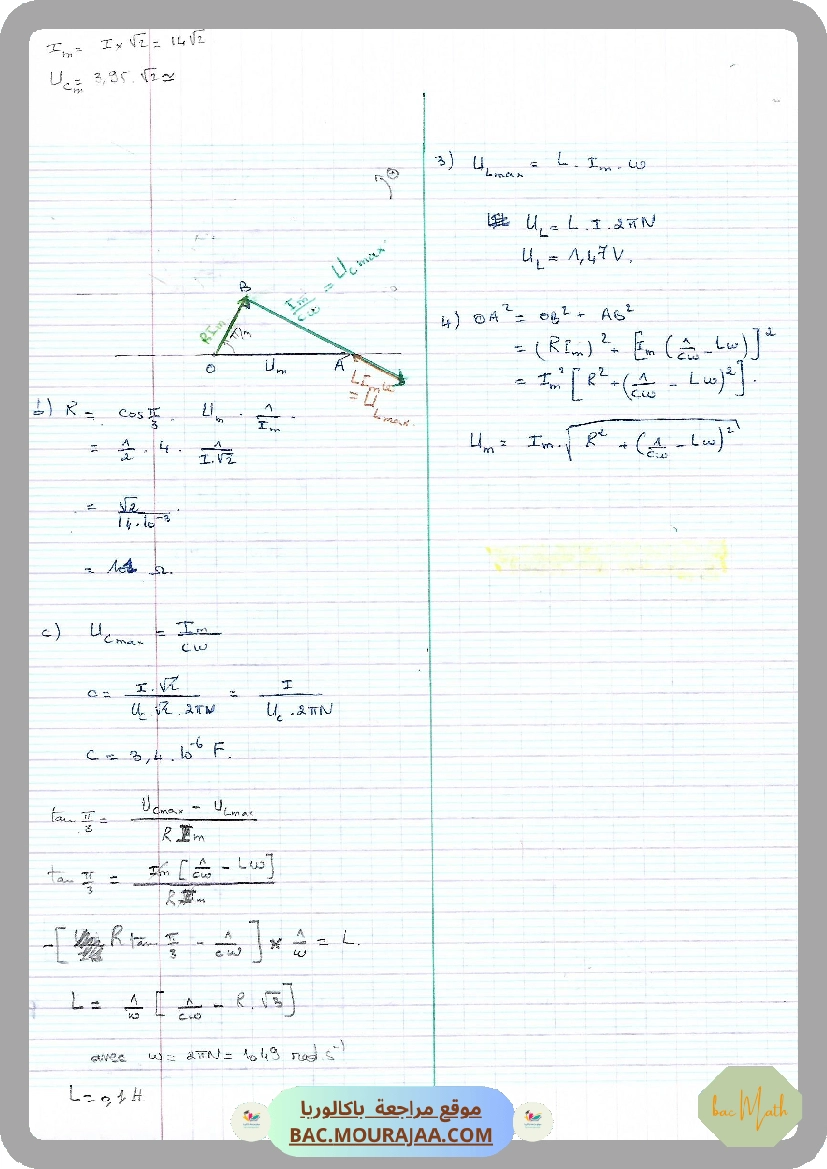 I_m = I × √2 = 14√2
U_Cm = 3,95 . √2 ≃
B
RI_m
π/3
I_m/Cω = U_C max
O
U_m
A
L I_m ω
= U_L max
b) R = cos π/3 . U_m . 1/I_m .
= 1/2 . 4 . 1/(I.√2)
= √2/(14.10^-3) .
= 101 Ω.
c) U_C max = I_m/Cω
C = I.√2/(U_C √2 . 2πN) = I/(U_C . 2πN)
C = 3,4 . 10^-6 F.
tan π/3 = (U_C max - U_L max)/(R I_m)
tan π/3 = I_m [1/Cω - Lω]/(R I_m)
-[R tan π/3 - 1/Cω] × 1/ω = L.
L = 1/ω [1/Cω - R.√3]
avec ω = 2πN = 1049 rad.s^-1
L = 0,1 H
3) U_L max = L . I_m . ω
U_L = L . I . 2πN
U_L = 1,47 V.
4) OA² = OB² + AB²
= (RI_m)² + [I_m (1/Cω - Lω)]²
= I_m² [R² + (1/Cω - Lω)²] .
U_m = I_m . √(R² + (1/Cω - Lω)²)
موقع مراجعة باكالوريا
BAC.MOURAJAA.COM
bac Math